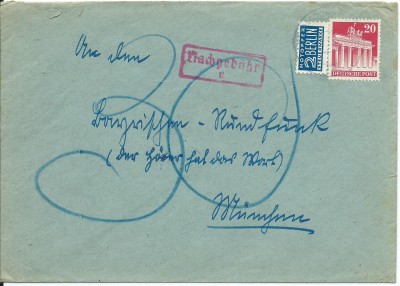 An den
Nachgebühr
20
DEUTSCHE POST
NOTOPFER
2 BERLIN
STEUERMARKE
Bayrischen - Rundfunk
(der Hörer hat das Wort)
30
München